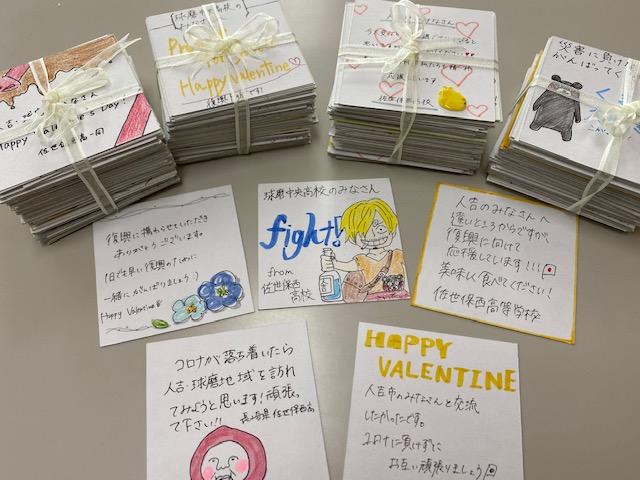 人吉・球
みなさん
Happy Valentine's Day!
佐世保西高一同
球磨中央高校の
Happy Valentine
復興
です!
みなさん
佐世保西高校
災害に負け
がんばって
復興に携わらせていただき
ありがとうございます
1日でも早い復興のために
一緒にがんばりましょう:)
Happy Valentine
球磨中央高校のみなさん
fight!
from
佐世保西
高校
人吉のみなさんへ
遠いところからですが、
復興に向けて
応援しています!!!
美味しく食べてください!
佐世保西高等学校
コロナが落ち着いたら
人吉・球磨地域を訪れ
てみようと思います!頑張っ
て下さい!!
長崎県 佐世保西高
HAPPY
VALENTINE
人吉市のみなさんと交流
したかったです。
コロナに負けずに
お互い頑張りましょう